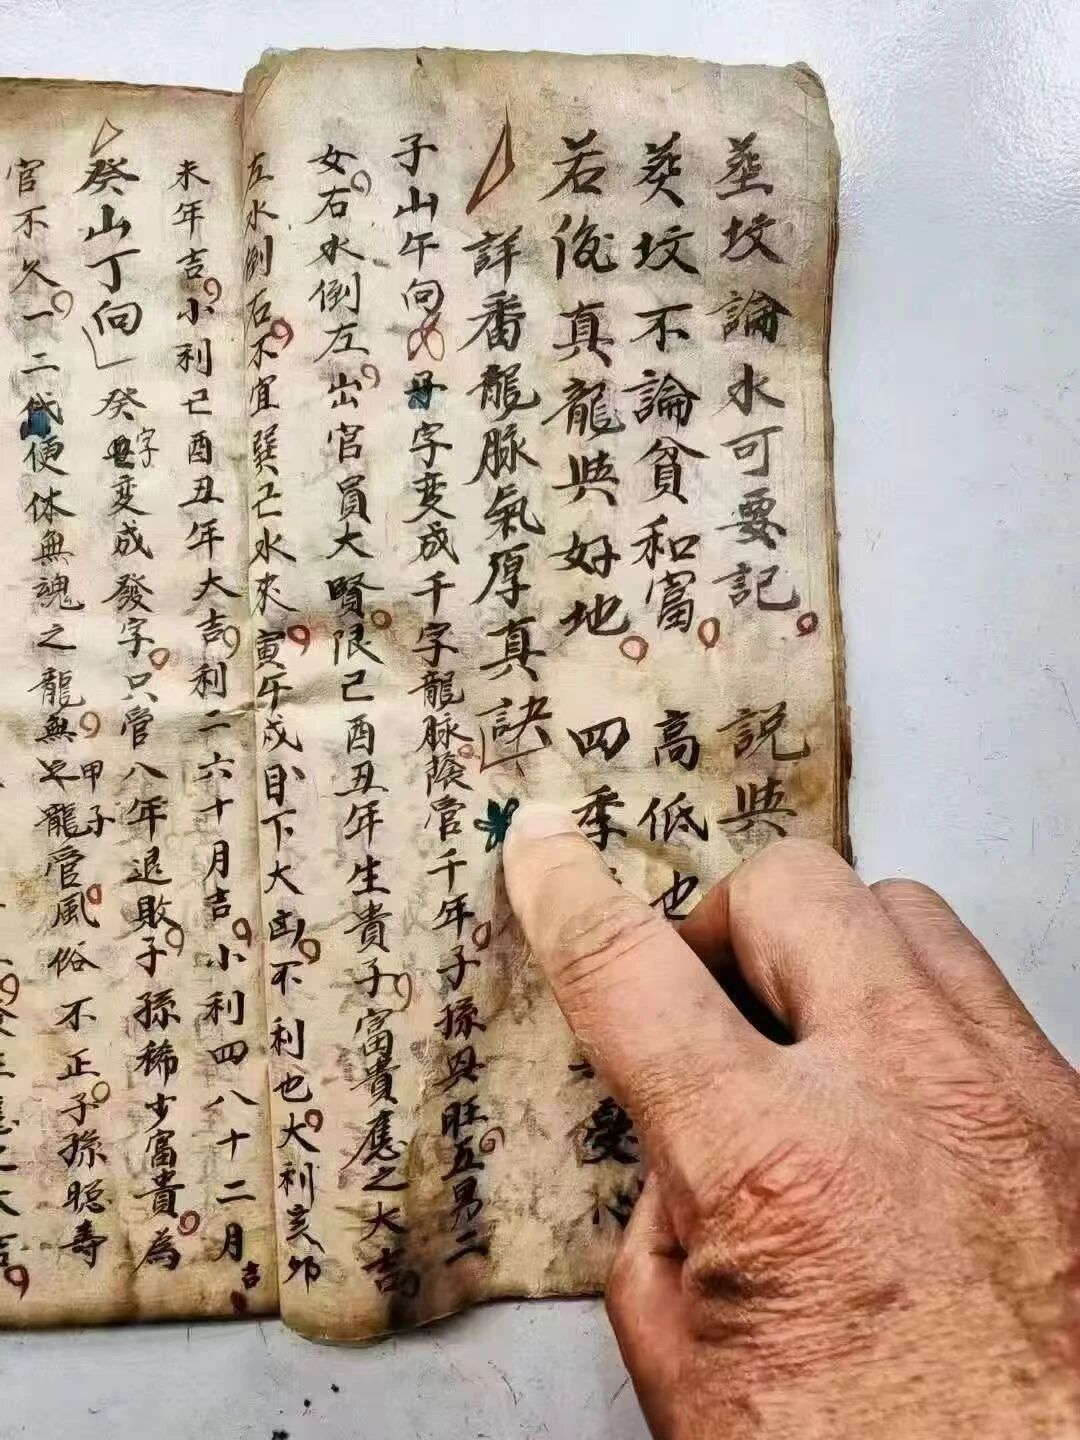 葬坟論水可要記 説與
葵坟不論貧和富 高低也
若後真龍與好地 四季 憂心
詳番龍脉氣厚真訣
子山午向 毋字变成千字龍脉蔭官千年子孫興旺五男二
女右水倒左出官員大賢限己酉丑年生貴子富貴應之大吉
左水倒右不宜巽己水來寅午戌日下大凶不利也大利亥卯
未年吉小利己酉丑年大吉利二六十月吉小利四八十二月吉
癸山丁向癸字变成發字只管八年退敗子孫稀少富貴為
官不久一二代便休無魂之龍無 龍管風俗不正子孫聪壽
甲子